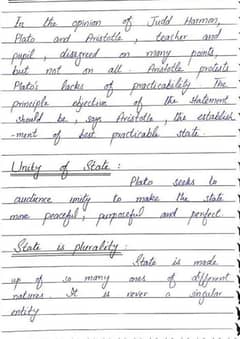 In the opinion of Judd Harmon,
Plato and Aristotle, teacher and
pupil, disagreed on many points,
but not on all. Aristotle protests
Plato's lacks of practicability. The
principle objective of the statement
should be, says Aristotle, the establish
-ment of best practicable state.
Unity of State:
Plato seeks to
audience unity to make the state
more peaceful, purposeful and perfect.
State is plurality:
State is made
up of so many ones of different
natures. It is never a singular
entity